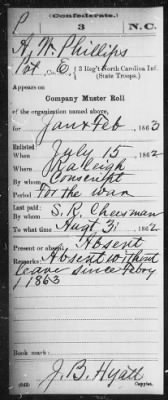 P Confederate.
3 N.C.
A. W. Phillips
Pvt, Co. E, 3 Reg't North Carolina Inf.
(State Troops.)
Appears on
Company Muster Roll
of the organization named above,
for Jan & Feb, 1863
Enlisted:
When July 15, 1862
Where Raleigh
By whom Conscript
Period For the war
Last paid:
By whom S. R. Cheesman
To what time Augt 31, 1862
Present or absent Absent
Remarks: Absent without
leave since Feby
1 1863
Book mark:
J. B. Hyatt
(642) Copyist.